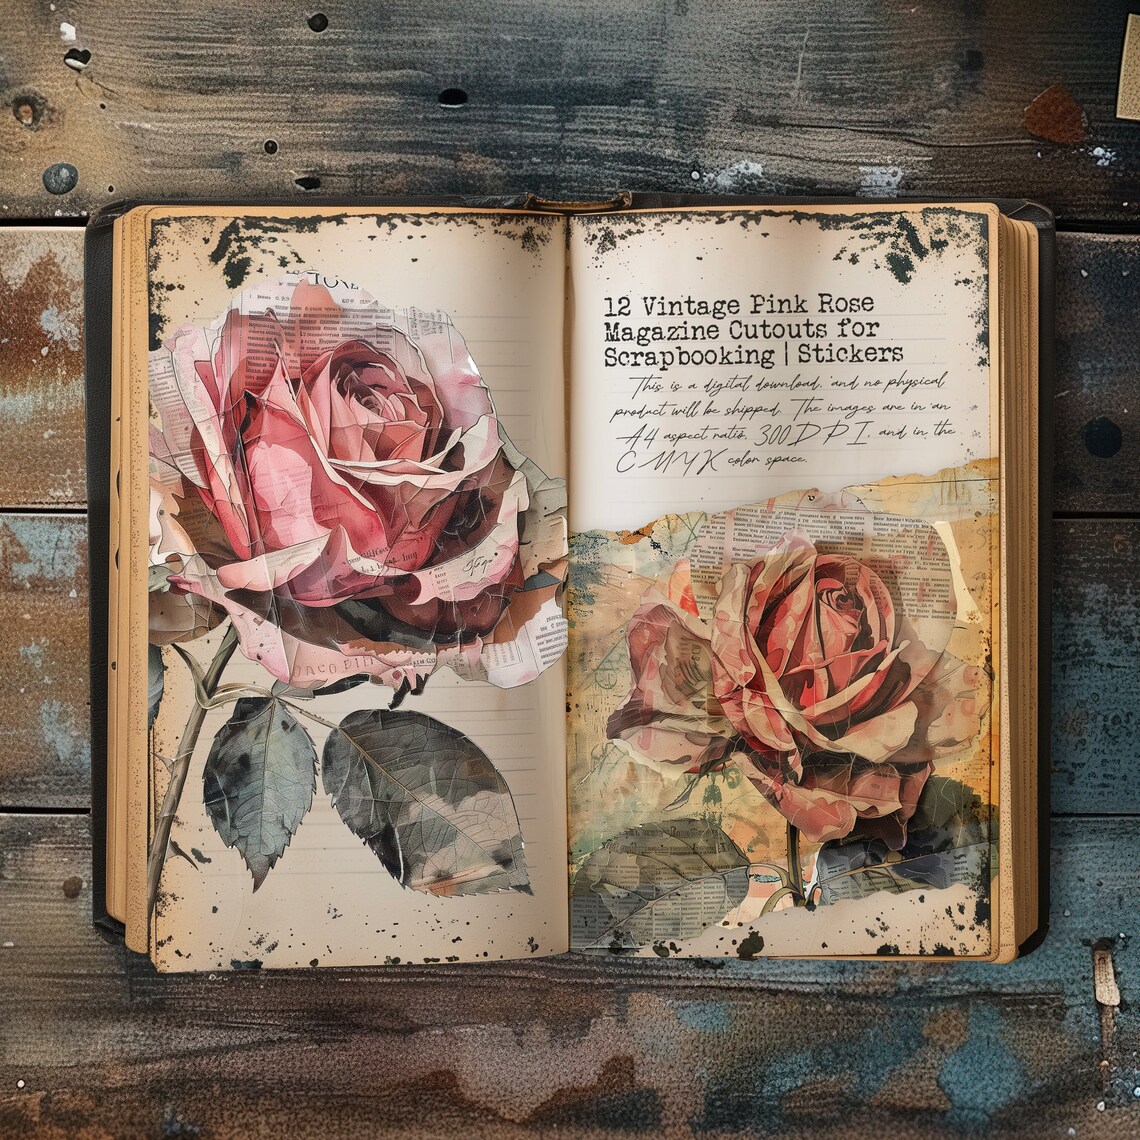 12 Vintage Pink Rose
Magazine Cutouts for
Scrapbooking | Stickers
This is a digital download, and no physical
product will be shipped. The images are in an
A4 aspect ratio, 300 DPI, and in the
CMYK color space.